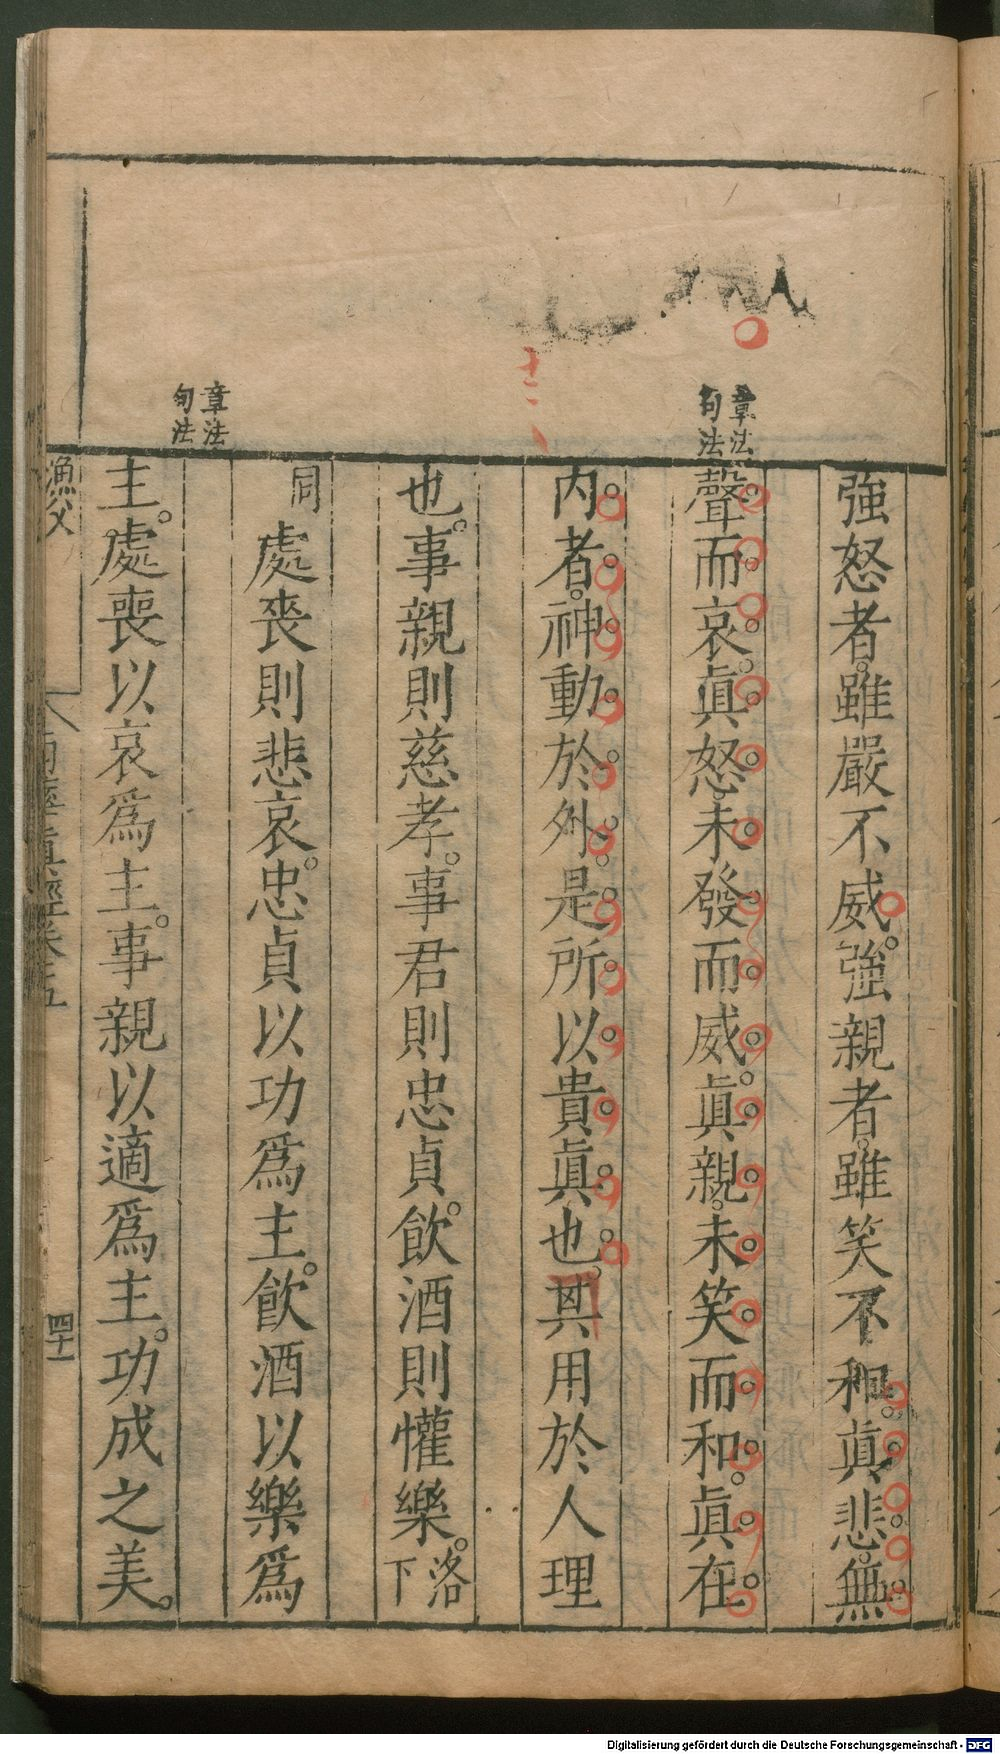 強怒者。雖嚴不威。強親者。雖笑不和。眞悲。無
聲而哀。眞怒。未發而威。眞親。未笑而和。眞在
內者。神動於外。是所以貴眞也。其用於人理
也。事親則慈孝。事君則忠貞。飲酒則懽樂。洛下
同處喪則悲哀。忠貞以功爲主。飲酒以樂爲
主。處喪以哀爲主。事親以適爲主。功成之美。
章法
句法
章法
句法
漁父
南華眞經卷十五
四十一
Digitalisierung gefördert durch die Deutsche Forschungsgemeinschaft - DFG